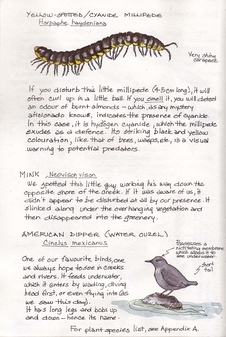 YELLOW-SPOTTED/CYANIDE MILLIPEDE
Harpaphe haydeniana
Very shiny
carapace.
If you disturb this little millipede (4-5cm long), it will
often curl up in a little ball. If you smell it, you will detect
an odour of burnt almonds - which, as any mystery
aficionado knows, indicates the presence of cyanide.
In this case, it is hydrogen cyanide, which the millipede
exudes as a defence. Its striking black and yellow
colouration, like that of bees, wasps, etc., is a visual
warning to potential predators.
MINK, Neovison vison
We spotted this little guy working his way down the
opposite shore of the creek. If it was aware of us, it
didn't appear to be disturbed at all by our presence. It
slinked along under the overhanging vegetation and
then disappeared into the greenery.
AMERICAN DIPPER (WATER OUZEL)
Cinclus mexicanus
Possesses a
nictitating membrane
which allows it to see
underwater.
short
tail
One of our favourite birds, one
we always hope to see in creeks
and rivers. It feeds underwater,
which it enters by wading, diving
head first, or even flying into (as
we saw this day).
It has long legs and bobs up
and down - hence its name.
For plant species list, see Appendix A.